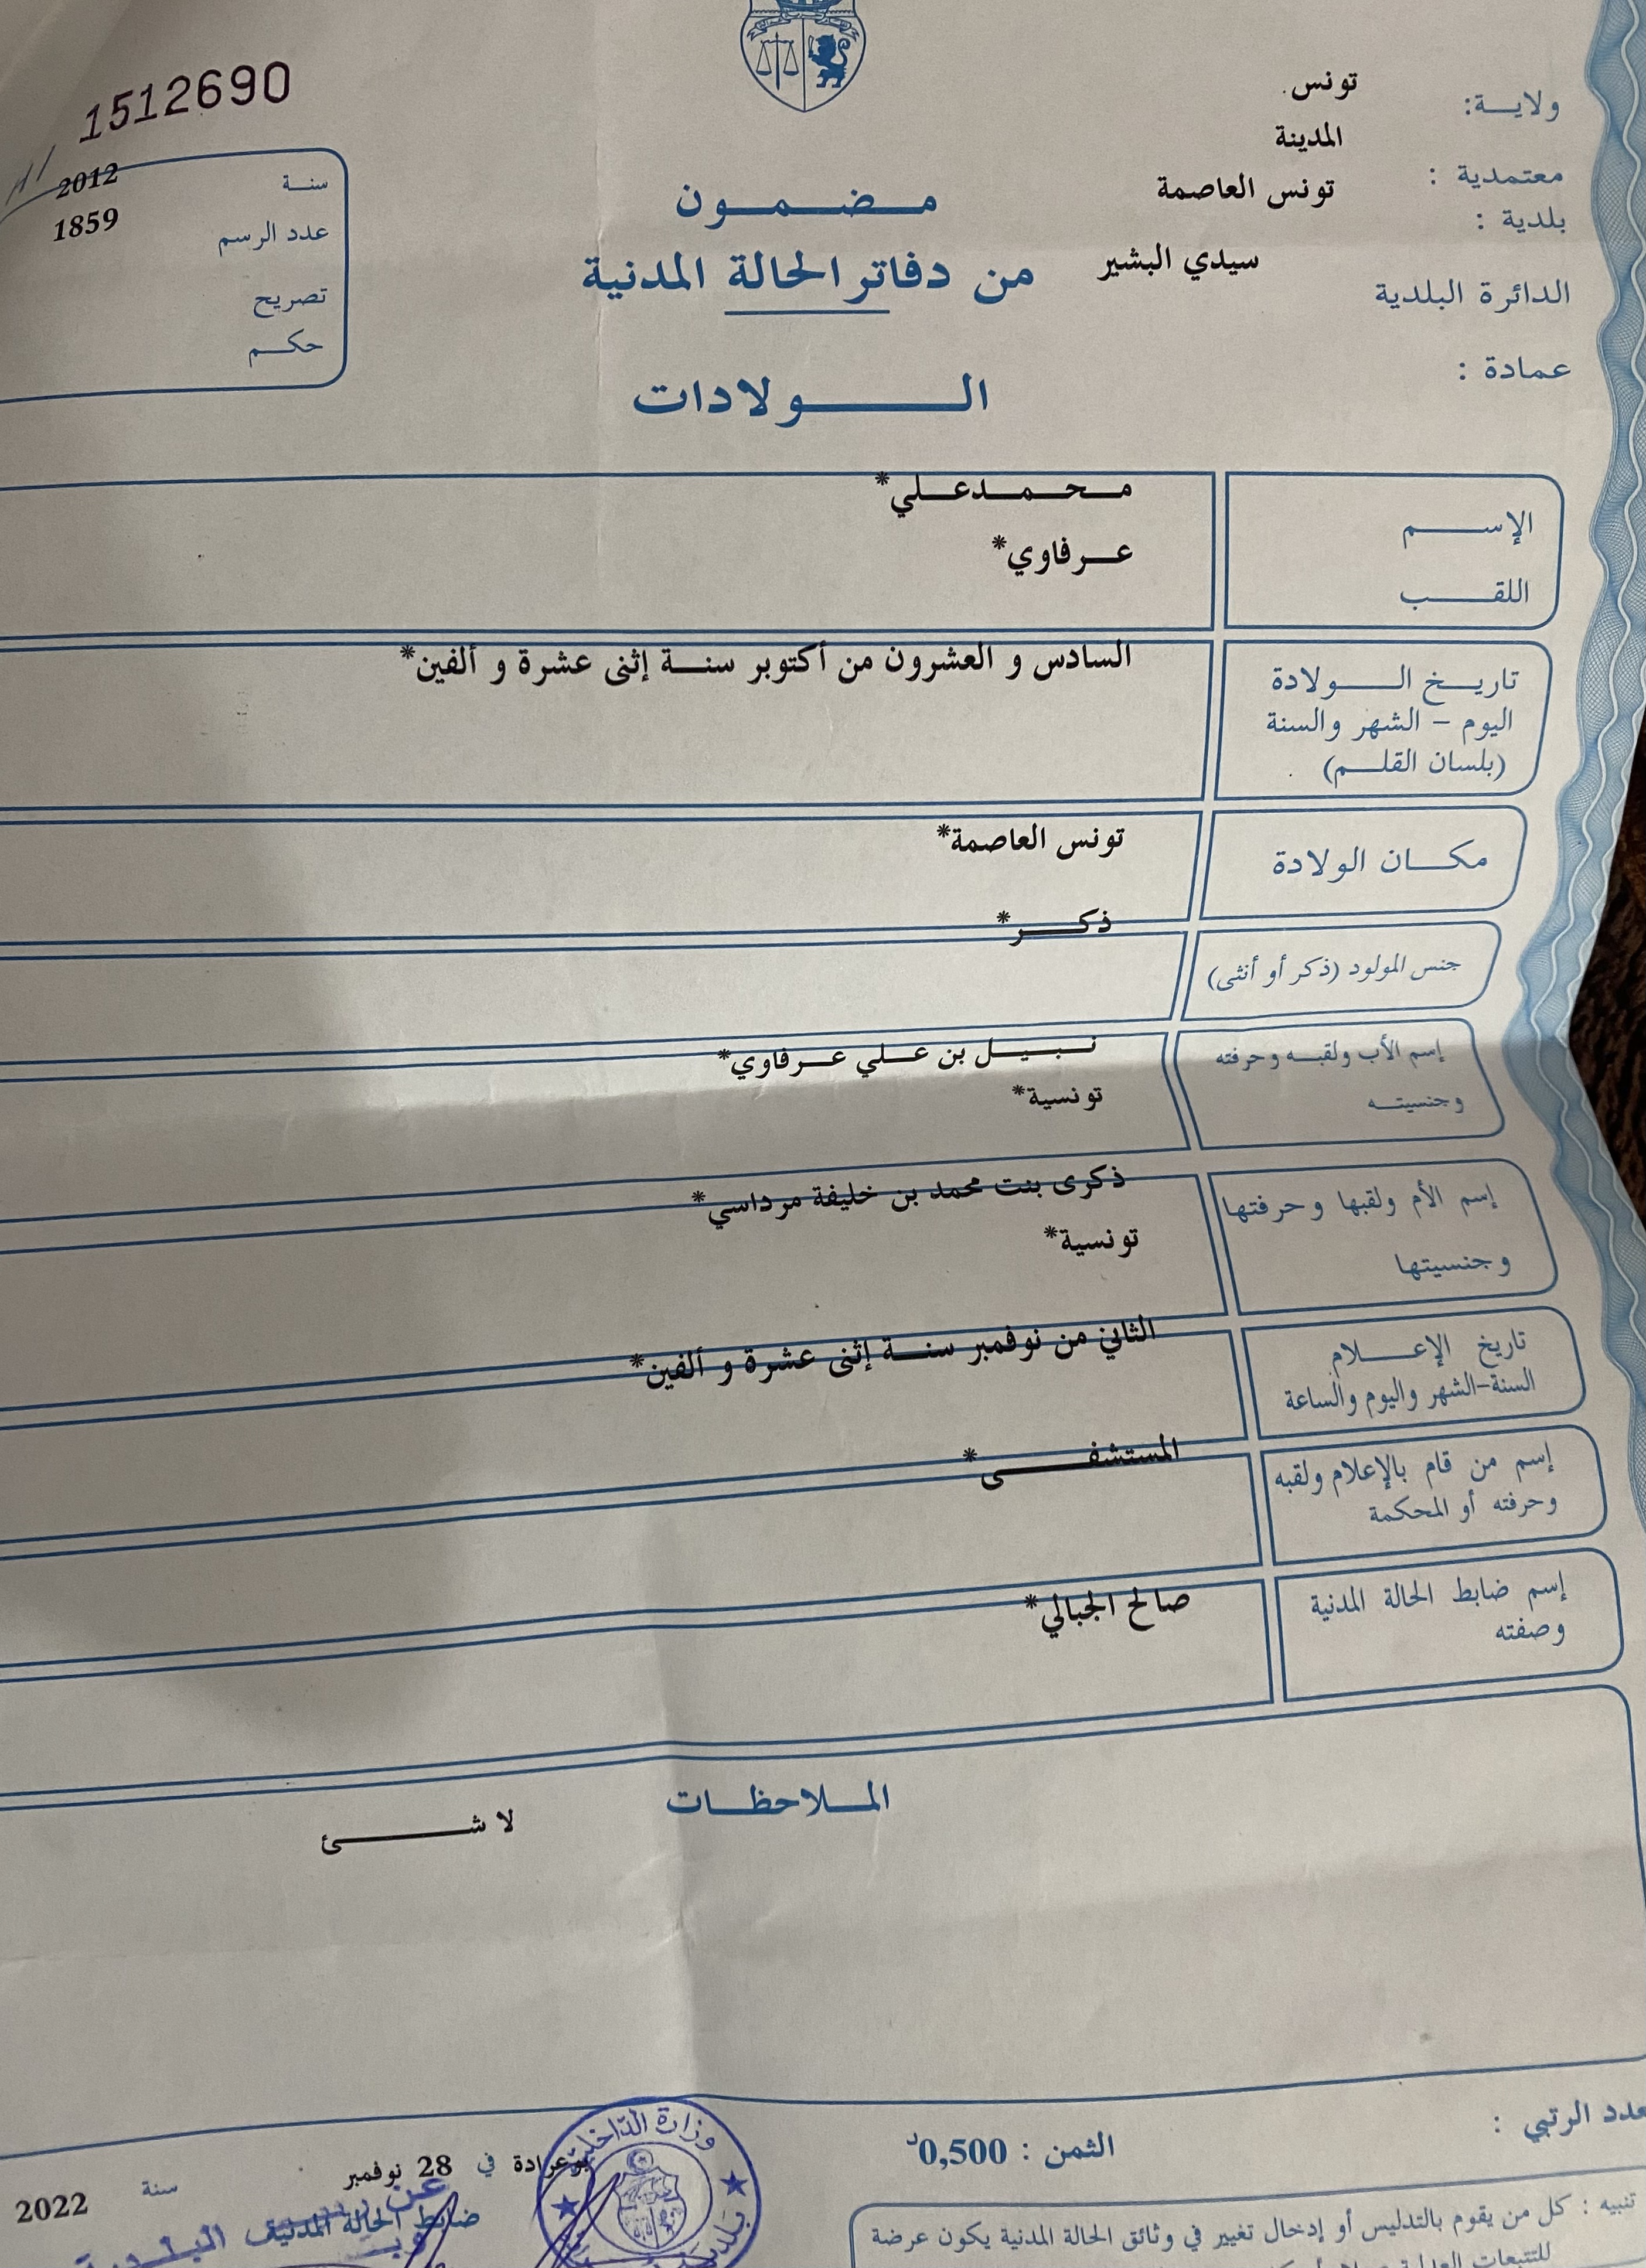 1512690
ولاية: تونس
معتمدية : المدينة
بلدية : تونس العاصمة
الدائرة البلدية سيدي البشير
عمادة :
سنة 2012
عدد الرسم 1859
تصريح
حكم
مضمون
من دفاتر الحالة المدنية
الولادات
الإسم محمدعلي*
اللقب عرفاوي*
تاريخ الولادة
اليوم - الشهر والسنة
(بلسان القلم)
السادس و العشرون من أكتوبر سنة إثنى عشرة و ألفين*
مكان الولادة تونس العاصمة*
جنس المولود (ذكر أو أنثى) ذكر*
إسم الأب ولقبه وحرفته
وجنسيته
نبيل بن علي عرفاوي*
تونسية*
إسم الأم ولقبها وحرفتها
وجنسيتها
ذكرى بنت محمد بن خليفة مرداسي*
تونسية*
تاريخ الإعلام
السنة-الشهر واليوم والساعة
الثاني من نوفمبر سنة إثنى عشرة و ألفين*
إسم من قام بالإعلام ولقبه
وحرفته أو المحكمة
المستشفى*
إسم ضابط الحالة المدنية
وصفته
صالح الجبالي*
الملاحظات
لا شئ
عدد الرتبي :
الثمن : 0,500د
بوعرادة في 28 نوفمبر سنة 2022
ضابط الحالة المدنية
عن رئيس البلدية
وزارة الداخلية
بلدية
تنبيه : كل من يقوم بالتدليس أو إدخال تغيير في وثائق الحالة المدنية يكون عرضة
للتتبعات العدلية